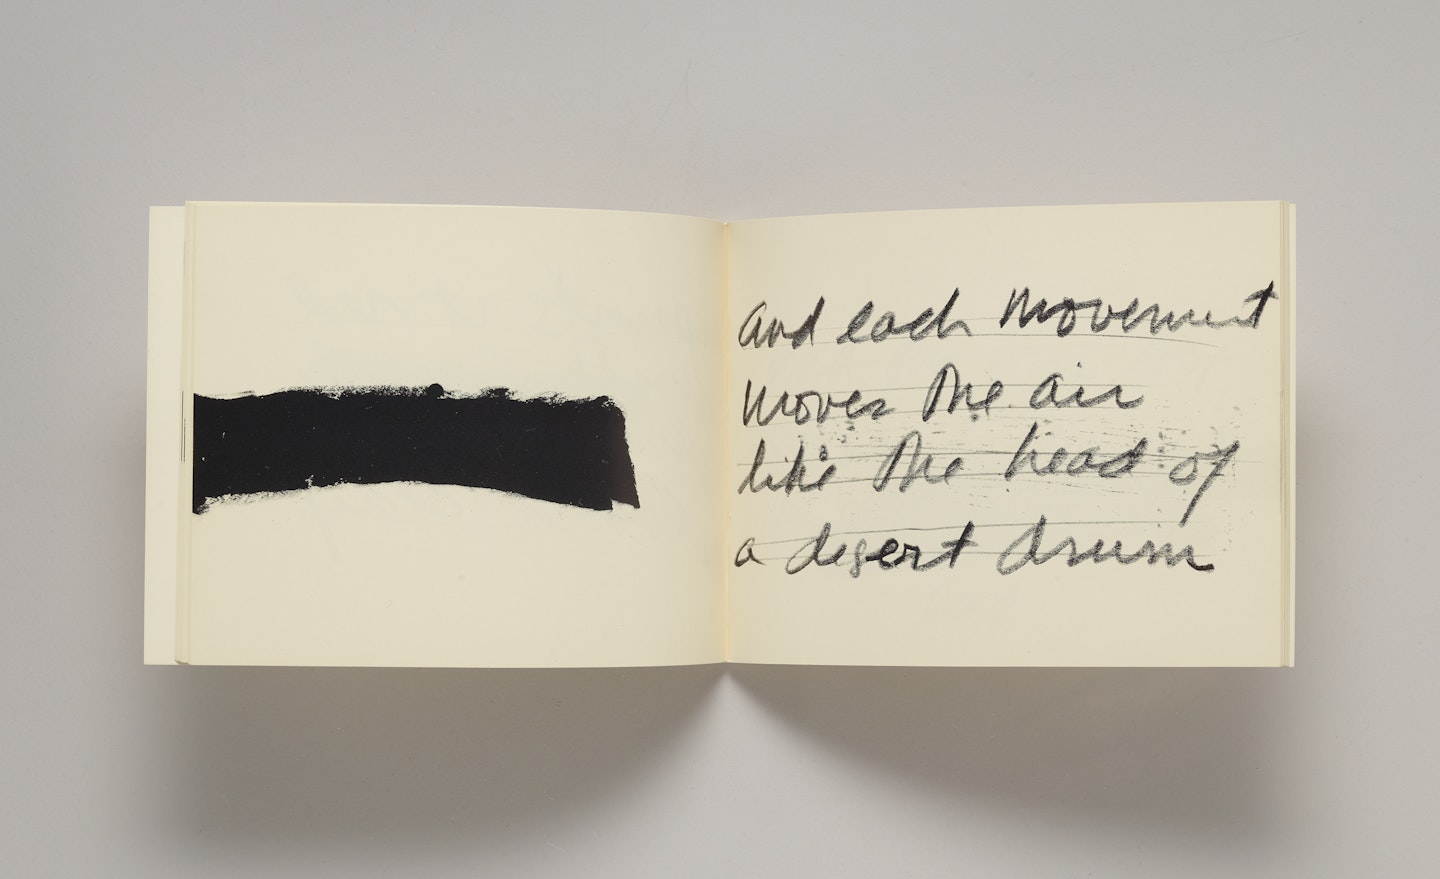 and each movement
moves the air
like the head of
a desert drum